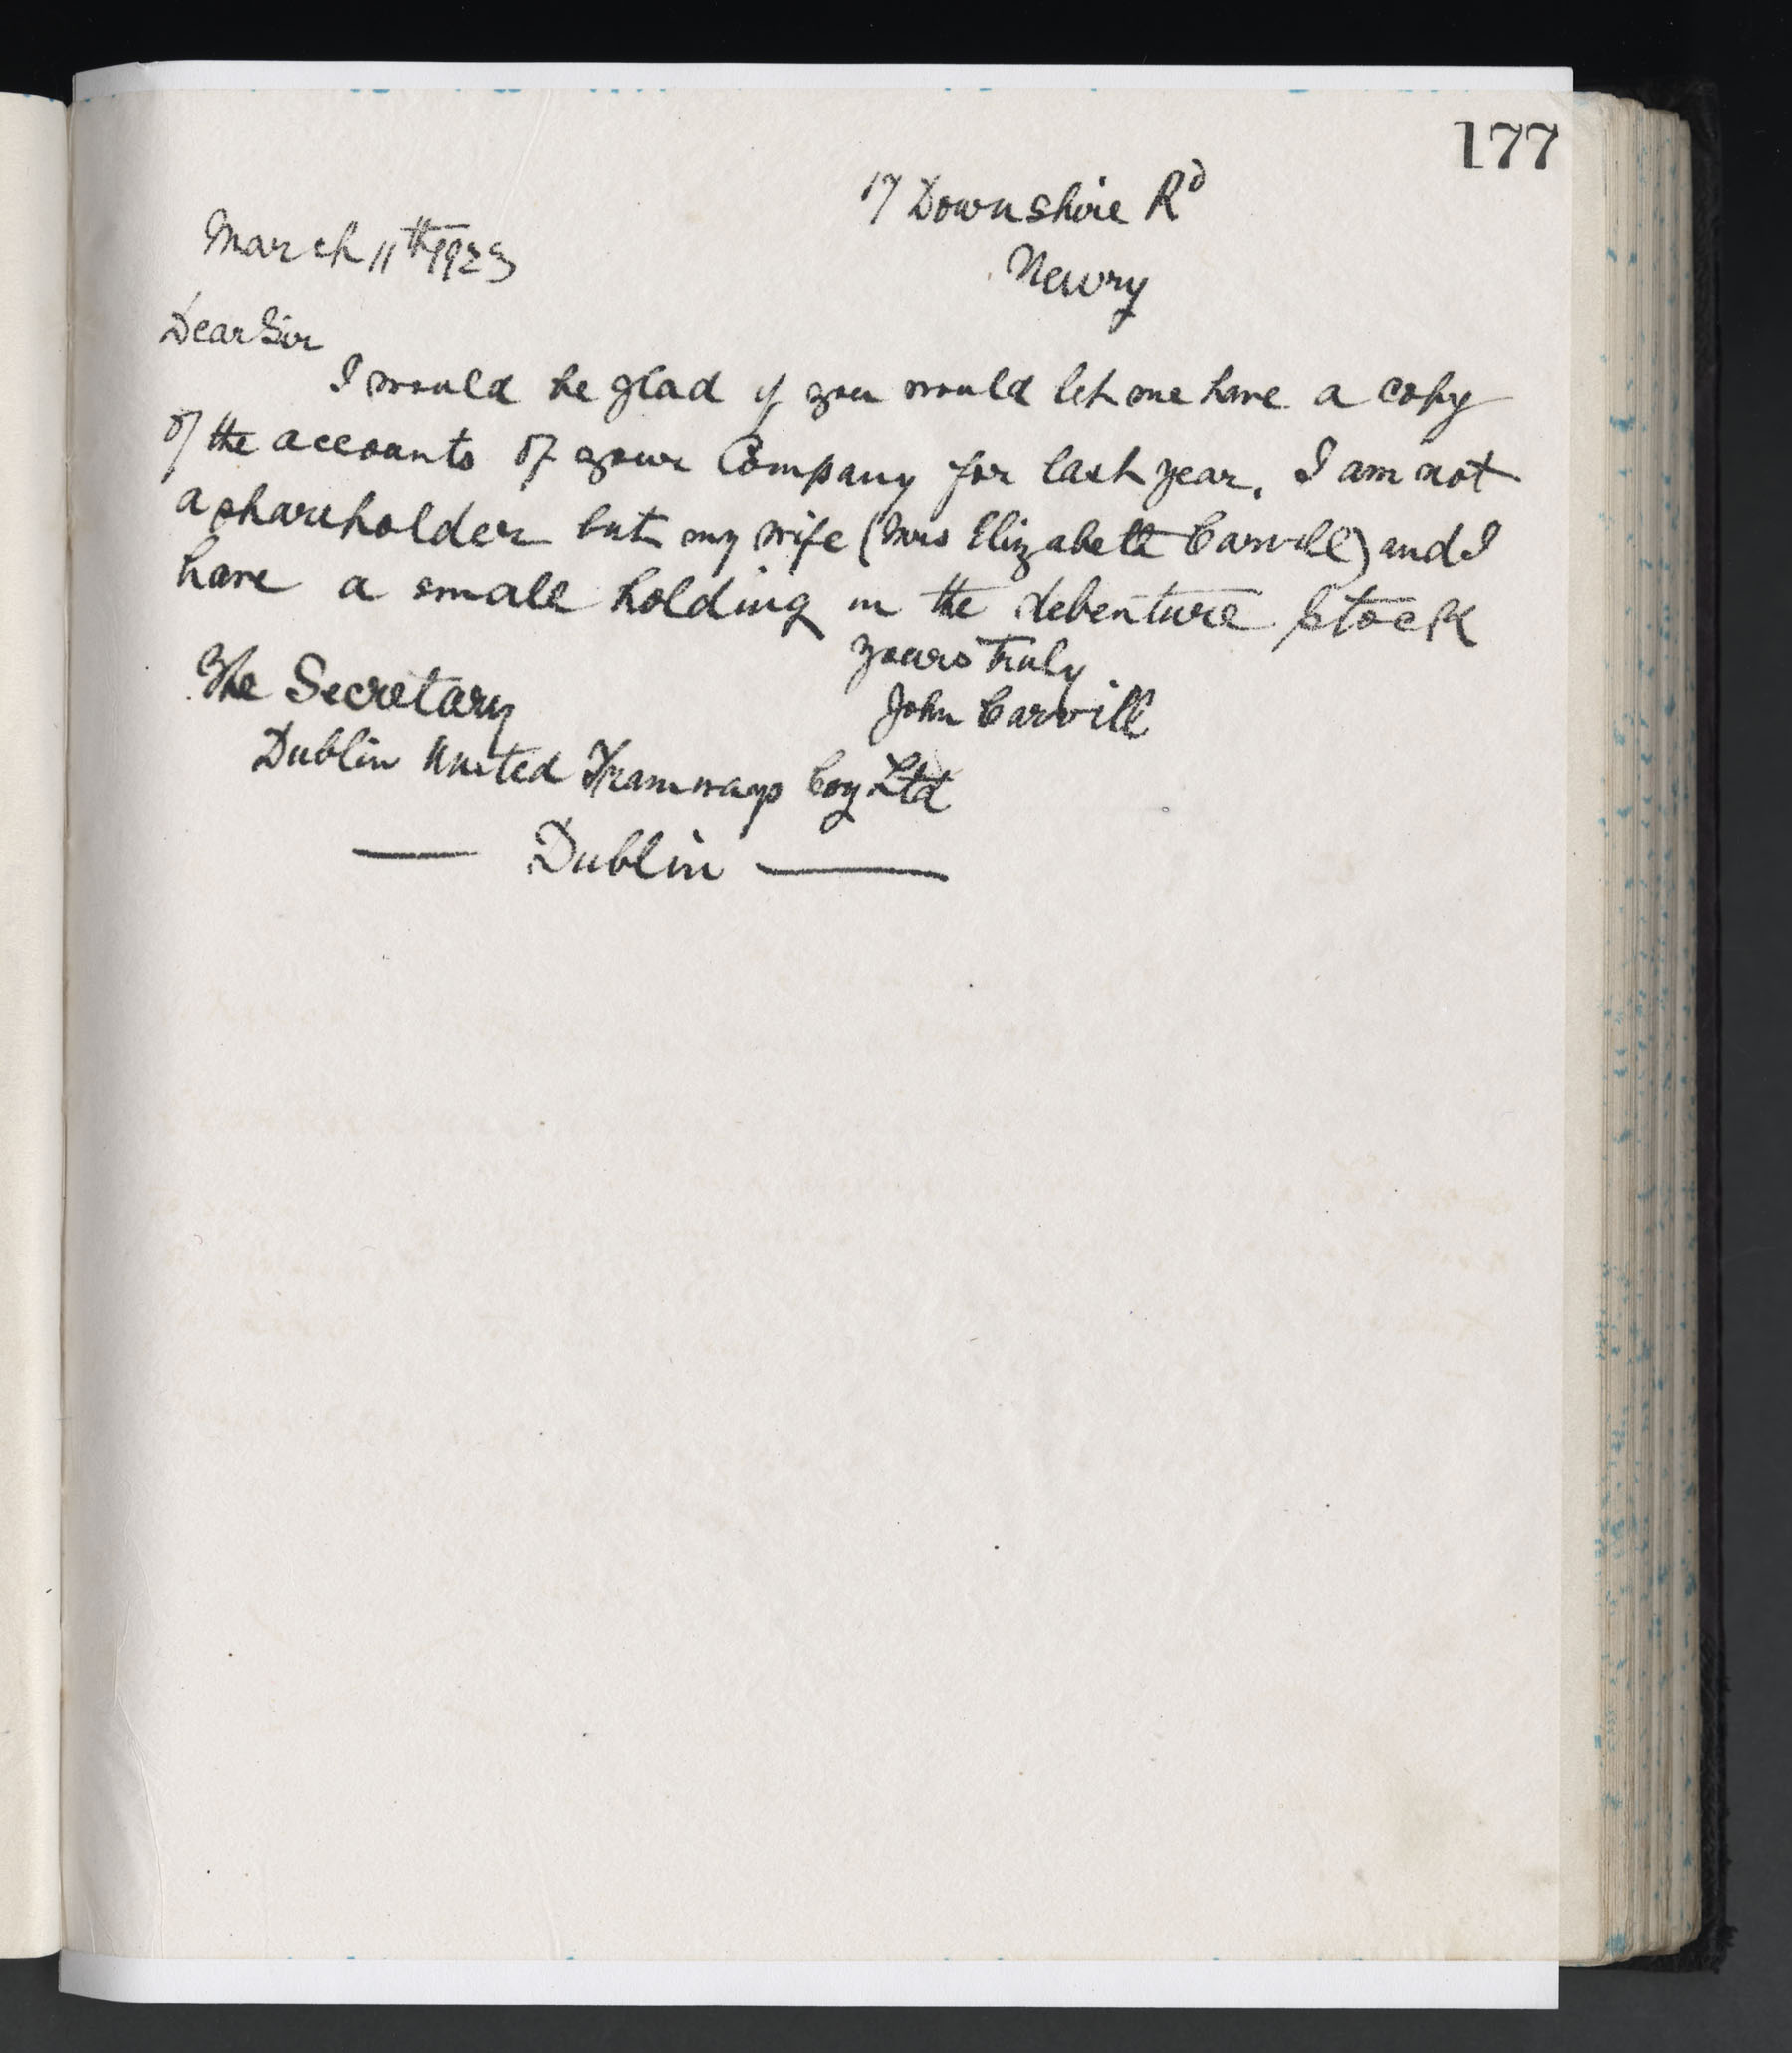 177
17 Downshire Rd
Newry
March 11th 1923
Dear Sir
I would be glad if you would let me have a copy
of the accounts of your Company for last year. I am not
a shareholder but my wife (Mrs Elizabeth Carvill) and I
have a small holding in the debenture stock
yours truly
John Carvill
The Secretary
Dublin United Tramways Coy Ltd
— Dublin —